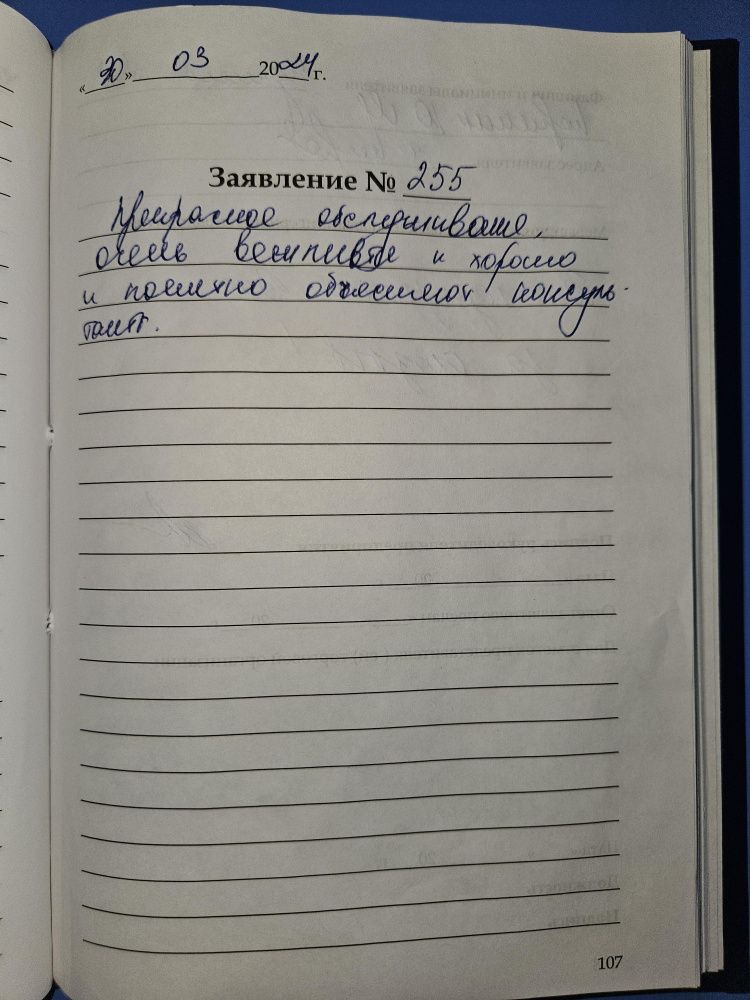 «30» 03 2024 г.
Заявление № 255
Прекрасное обслуживание,
очень вежливые и хорошо
и понятно объясняют консуль-
тант.
107